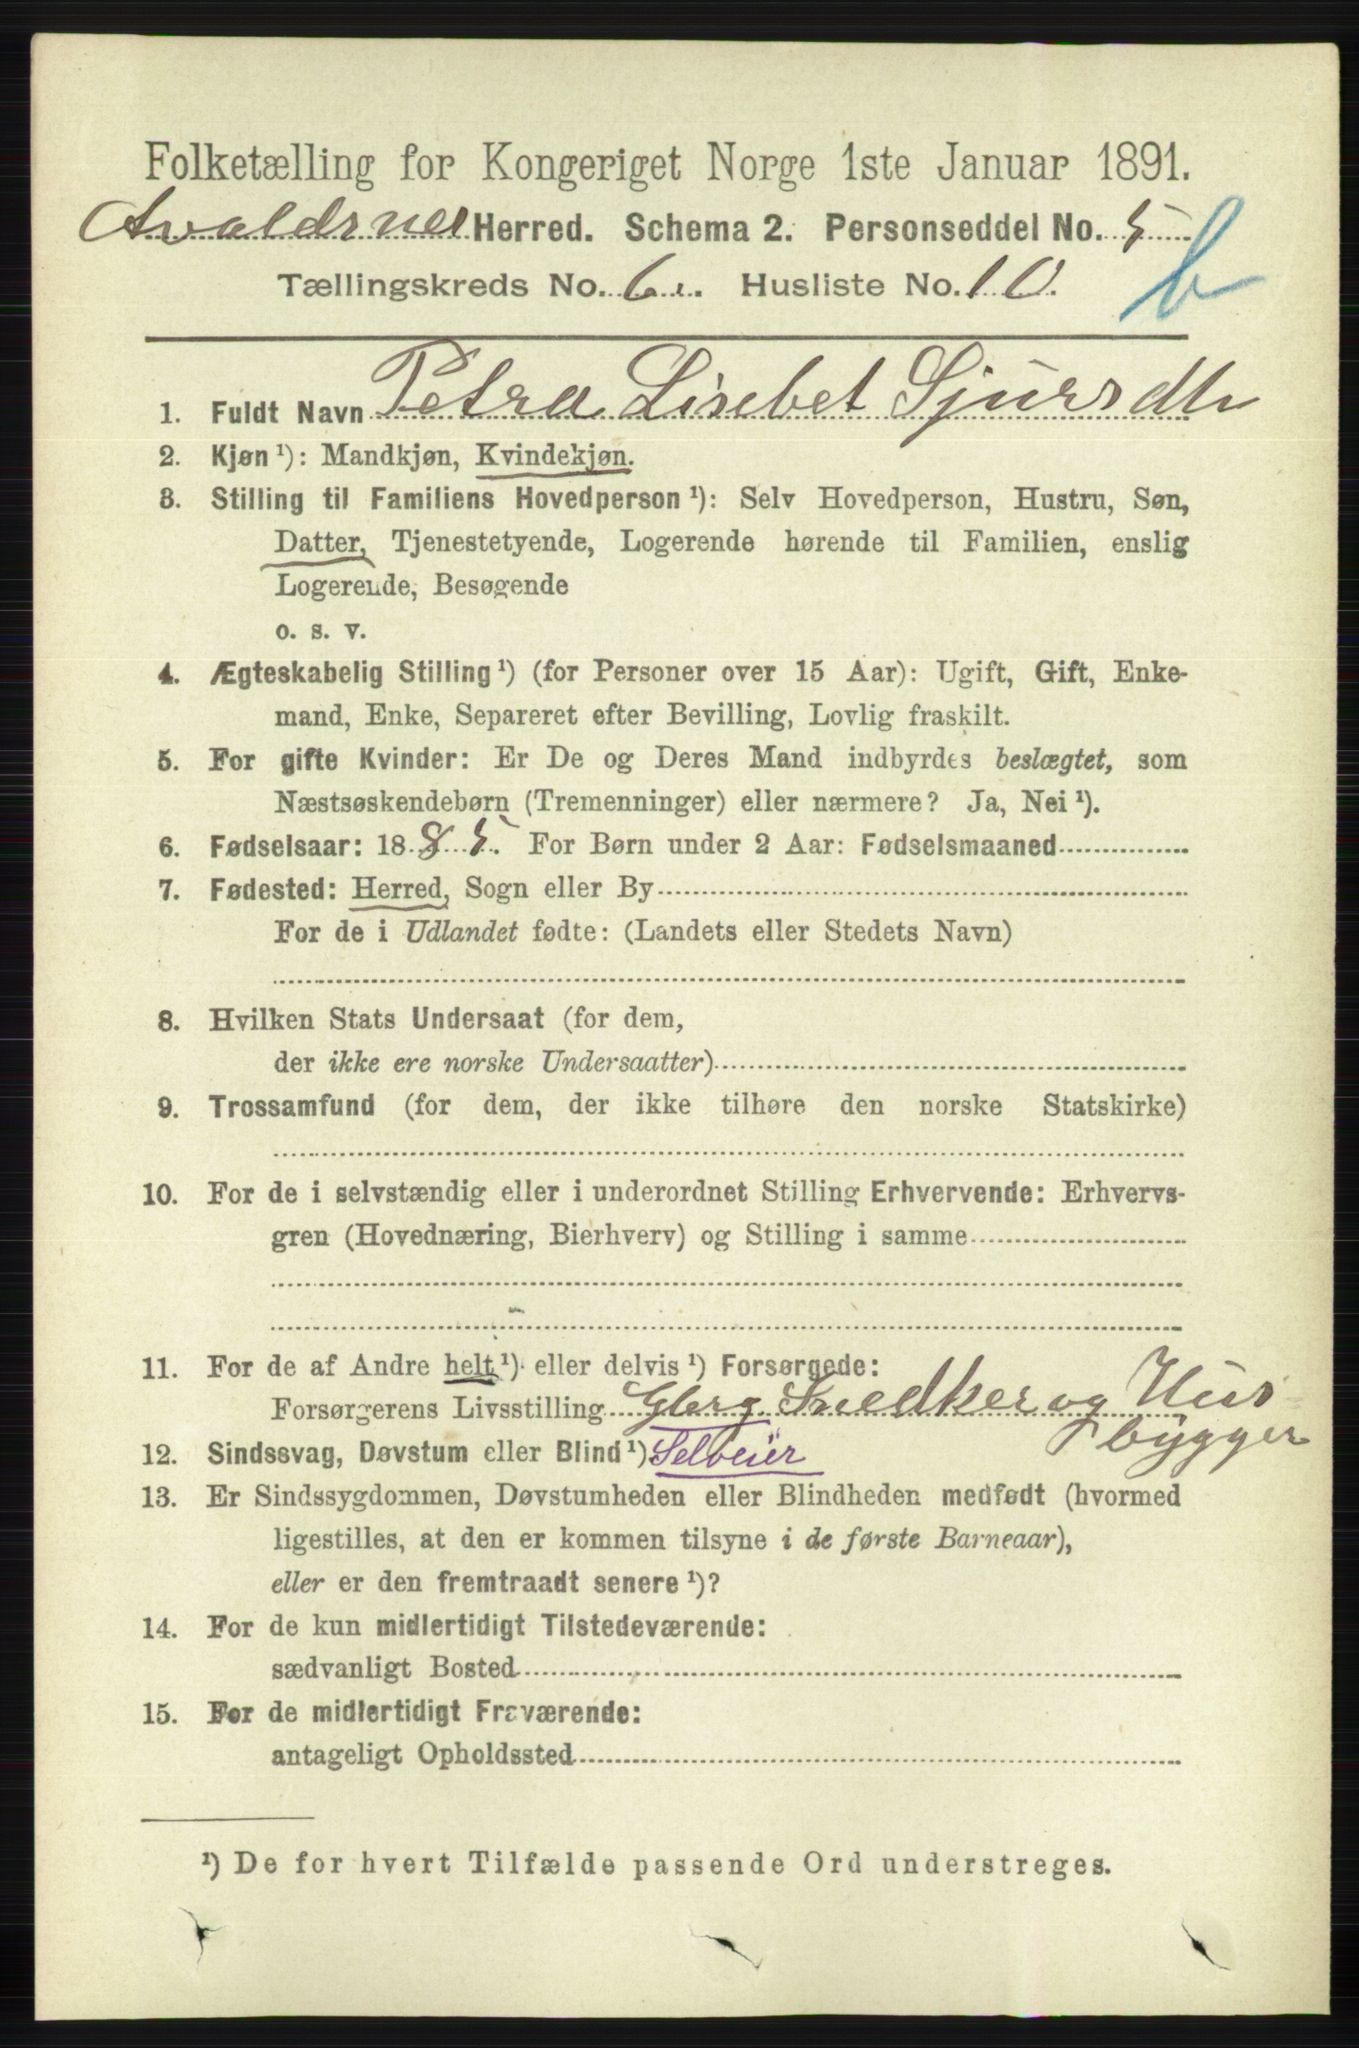 Folketælling for Kongeriget Norge 1ste Januar 1891.
Avaldsnes Herred. Schema 2. Personseddel No. 5
Tællingskreds No. 6. Husliste No. 10.
b
1. Fuldt Navn Petra Lisebet Sjursdtr
2. Kjøn ¹): Mandkjøn, Kvindekjøn.
3. Stilling til Familiens Hovedperson ¹): Selv Hovedperson, Hustru, Søn,
Datter, Tjenestetyende, Logerende hørende til Familien, enslig
Logerende, Besøgende
o. s. v.
4. Ægteskabelig Stilling ¹) (for Personer over 15 Aar): Ugift, Gift, Enke-
mand, Enke, Separeret efter Bevilling, Lovlig fraskilt.
5. For gifte Kvinder: Er De og Deres Mand indbyrdes beslægtet, som
Næstsøskendebørn (Tremenninger) eller nærmere? Ja, Nei ¹).
6. Fødselsaar: 1885. For Børn under 2 Aar: Fødselsmaaned
7. Fødested: Herred, Sogn eller By
For de i Udlandet fødte: (Landets eller Stedets Navn)
8. Hvilken Stats Undersaat (for dem,
der ikke ere norske Undersaatter)
9. Trossamfund (for dem, der ikke tilhøre den norske Statskirke)
10. For de i selvstændig eller i underordnet Stilling Erhvervende: Erhvervs-
gren (Hovednæring, Bierhverv) og Stilling i samme
11. For de af Andre helt ¹) eller delvis ¹) Forsørgede:
Forsørgerens Livsstilling Gbrg Snedker og Hus
bygger
12. Sindssvag, Døvstum eller Blind ¹) Selveier
13. Er Sindssygdommen, Døvstumheden eller Blindheden medfødt (hvormed
ligestilles, at den er kommen tilsyne i de første Barneaar),
eller er den fremtraadt senere ¹)?
14. For de kun midlertidigt Tilstedeværende:
sædvanligt Bosted
15. For de midlertidigt Fraværende:
antageligt Opholdssted
¹) De for hvert Tilfælde passende Ord understreges.